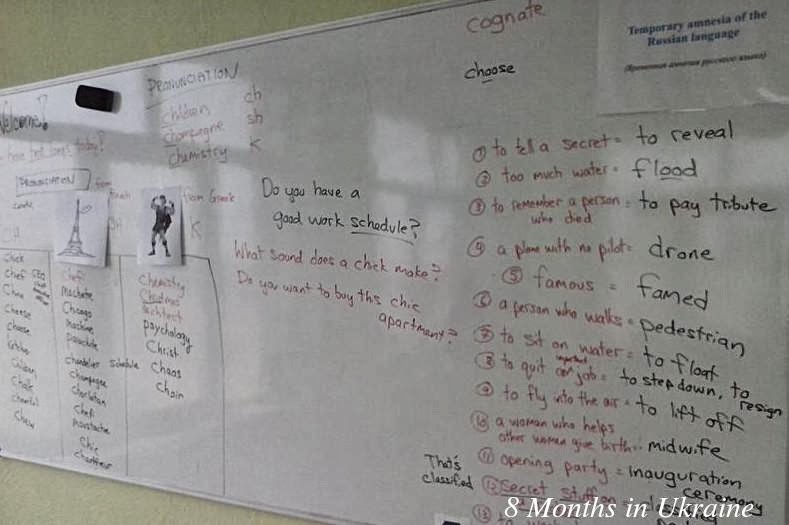 cognate
choose
Temporary amnesia of the
Russian language
(Временная амнезия русского языка)
Welcome!
PRONUNCIATION
children ch
champagne sh
chemistry K
PRONUNCIATION
from
French
from Greek
K
Chick
Chef
Cheese
choose
Chew
Chef
Machete
Chicago
Machine
parachute
chandelier
champagne
Charlatan
Chef
moustache
Chic
chauffeur
schedule
Chemistry
Christmas
architect
psychology
Christ
Chaos
Chain
Do you have a
good work schedule?
What sound does a chick make?
Do you want to buy this chic
apartment?
① to tell a secret = to reveal
② too much water = flood
③ to remember a person = to pay tribute
who died
④ a plane with no pilot = drone
⑤ famous = famed
⑥ a person who walks = pedestrian
⑦ to sit on water = to float
⑧ to quit important job = to step down, to
resign
⑨ to fly into the air = to lift off
⑩ a woman who helps
other women give birth = midwife
⑪ opening party = inauguration
ceremony
⑫ Secret
That's
classified
⑬ to
8 Months in Ukraine